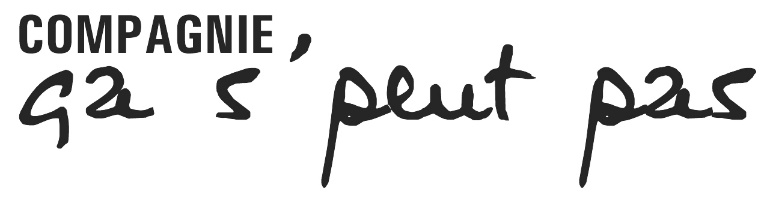 COMPAGNIE
ça s'peut pas